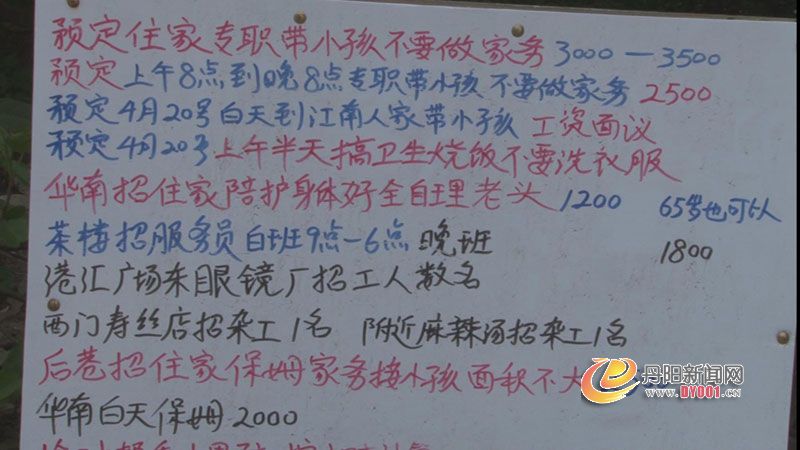 预定住家专职带小孩不要做家务 3000—3500
预定上午8点到晚8点专职带小孩 不要做家务 2500
预定4月20号白天到江南人家带小孩 工资面议
预定4月20号上午半天搞卫生烧饭不要洗衣服
华南招住家陪护身体好全自理老头 1200 65岁也可以
茶楼招服务员 白班9点-6点 晚班 1800
港汇广场东眼镜厂招工人数名
西门寿丝店招杂工1名 附近麻辣汤招杂工1名
后巷招住家保姆家务接小孩 面积不大
华南白天保姆2000
丹阳新闻网
WWW.DY001.CN